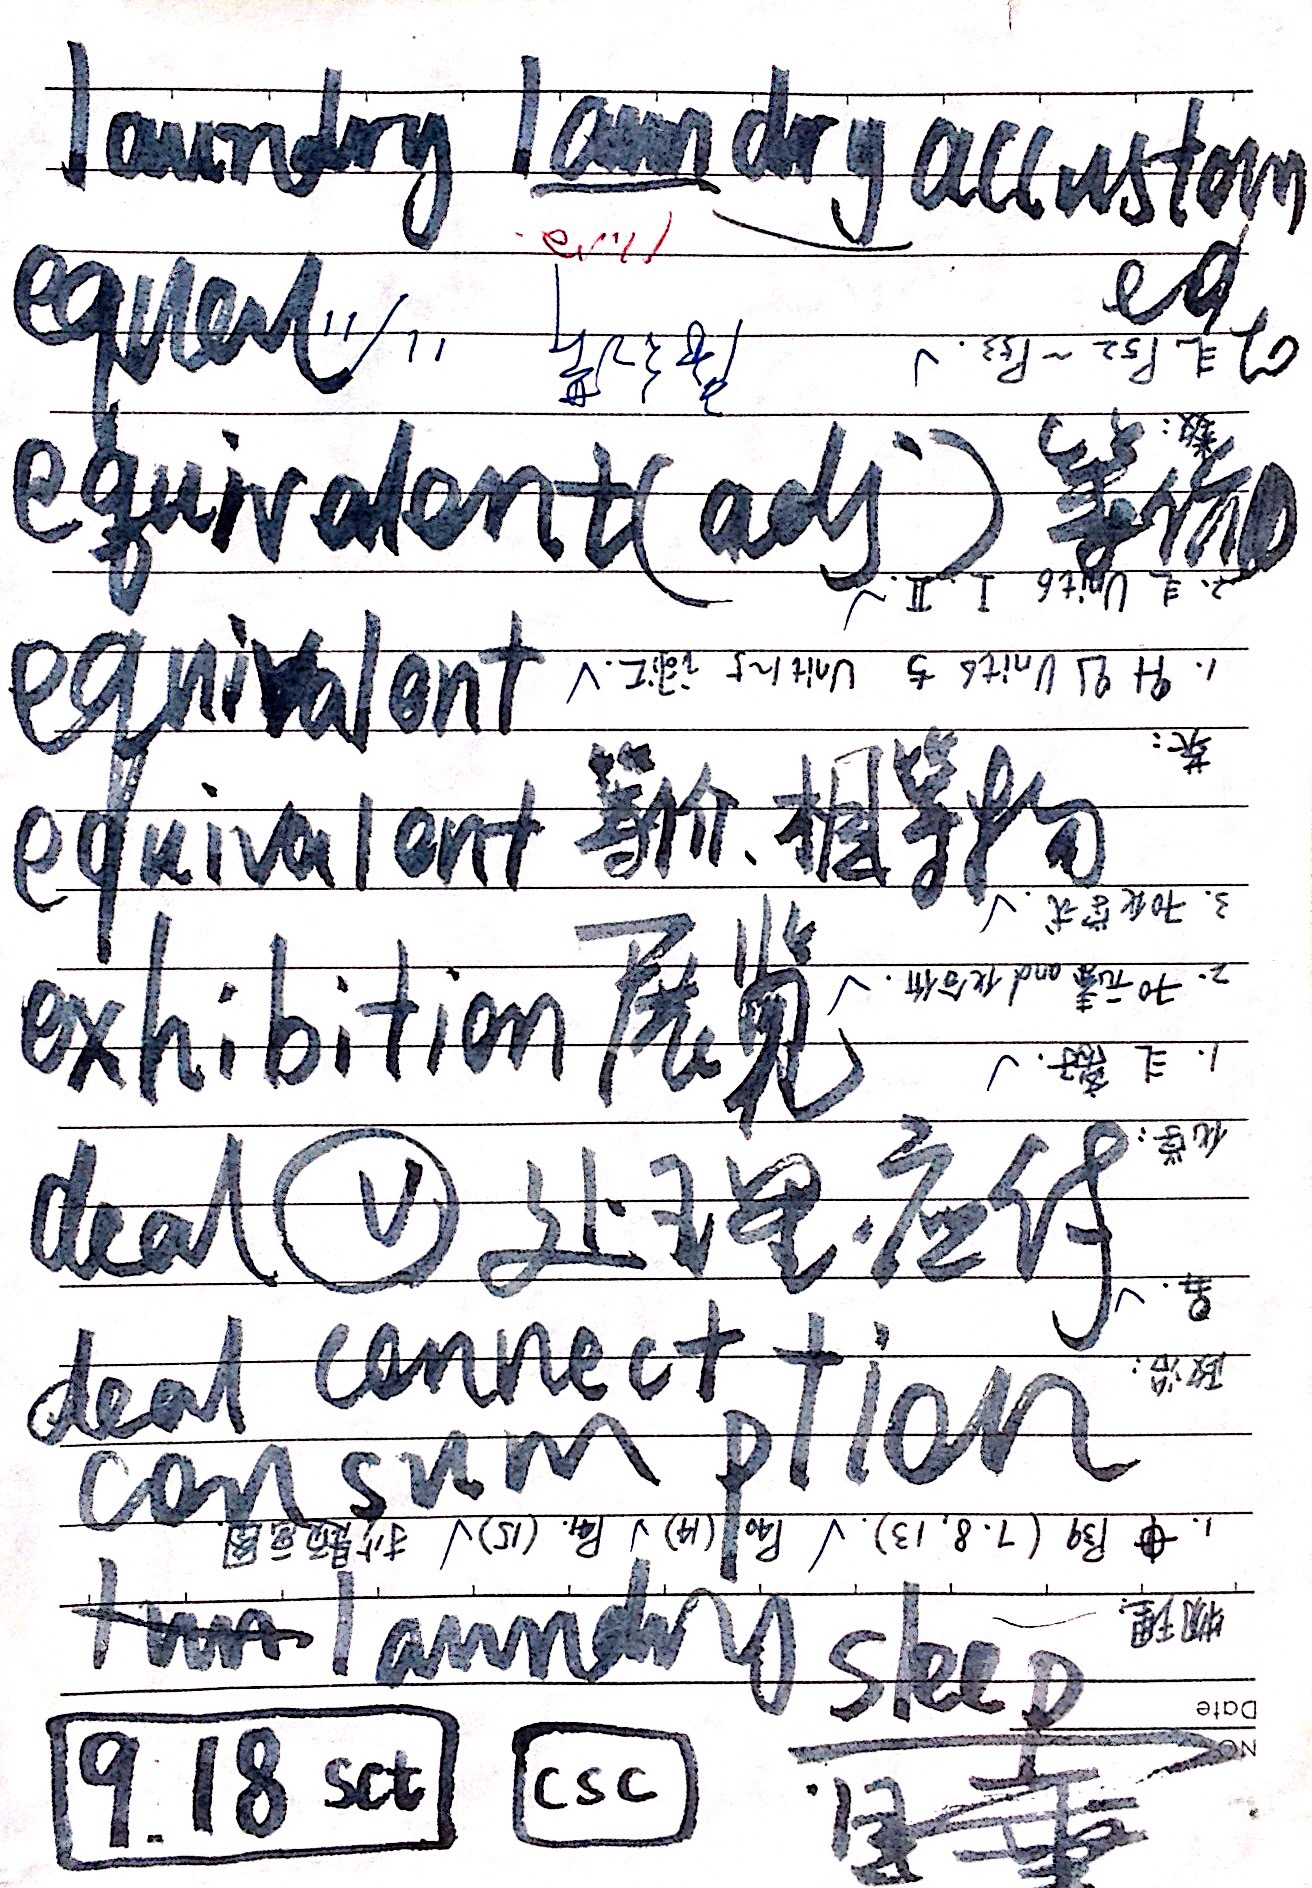 laundry laundry accustom
ed
equal
equivalent (adj) 等价
equivalent
equivalent 等价、相等物
exhibition 展览
deal v 处理.应付
deal connect
consumption
laundry sleep
9.18 sct csc
Date
NO
物理:
1. P39 (7.8,13). √ P40 (14) √ P41. (15) √ 抄题画图.
政治:
化学:
2. 元素 and 化合价. √
3. 化学式. √
英:
1. Unit6 与 Unit1~5 词汇. √
2. Unit6 I. II. √
数:
P52 ~ P53. √